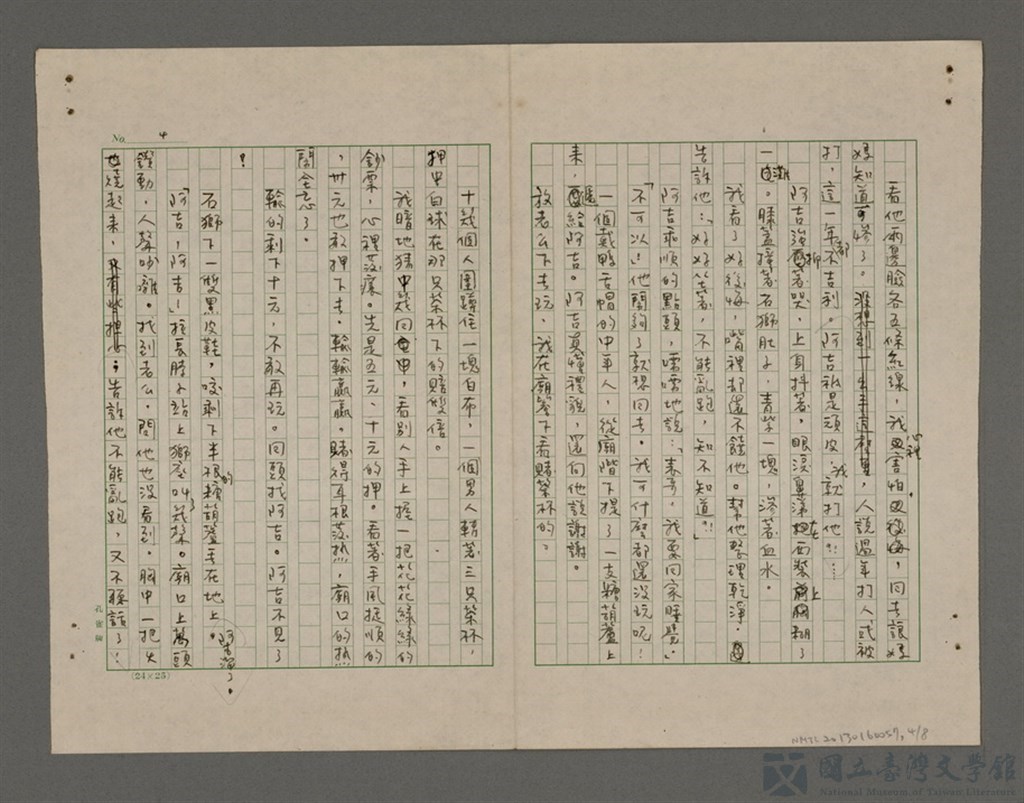 看他兩邊臉各五條紅線，我心裡害怕，回去讓媽
媽知道可慘了。人說過年打人或被
打，這一年都不吉利。阿吉祇是頑皮我就打他！…
阿吉強抑著哭，上身抖著，眼淚鼻涕在西裝上糊了
一灘。膝蓋撞著石獅肚子，青紫一塊，滲著血水。
我看了好後悔，嘴裡却還不饒他。幫他整理乾淨，
告訴他：「好好坐著，不能亂跑，知不知道？」
阿吉乖順的點頭，嚅嚅地說：「來哥，我要回家睡覺。」
「不可以！他鬧夠了就想回去。我可什麼都還沒玩呢！
一個戴鴨舌帽的中年人，從廟階下提了一支糖葫蘆上
來，遞給阿吉。阿吉真懂禮貌，還向他說謝謝。
放著么下去玩，我在廟簷下看賭菜杯的。
No. 4
十幾個人圍蹲住一塊白布，一個男人轉著三只茶杯，
押中白球在那只茶杯下的賠雙倍。
我暗地猜中幾回，看別人手上搖一把花花綠綠的
鈔票，心裡發癢。先是五元、十元的押。看著手風挺順的
，卅元也敢押下去。輸輸贏贏。賭得耳根發熱，廟口的熱
鬧全忘了。
輸的剩下十元，不敢再玩。回頭找阿吉。阿吉不見了
！
石獅下一雙黑皮鞋，咬剩下半根的糖葫蘆丟在地上。
「阿吉，阿吉！」拉長脖子站上獅座叫幾聲。廟口上萬頭
鑽動，人聲吵雜。找到老么，問他也沒看到。胸中一把火
也燒起來，告訴他不能亂跑，又不聽話了！
孔雀牌
(24×25)
NMTL20130160057, 4/8
國立臺灣文學館
National Museum of Taiwan Literature